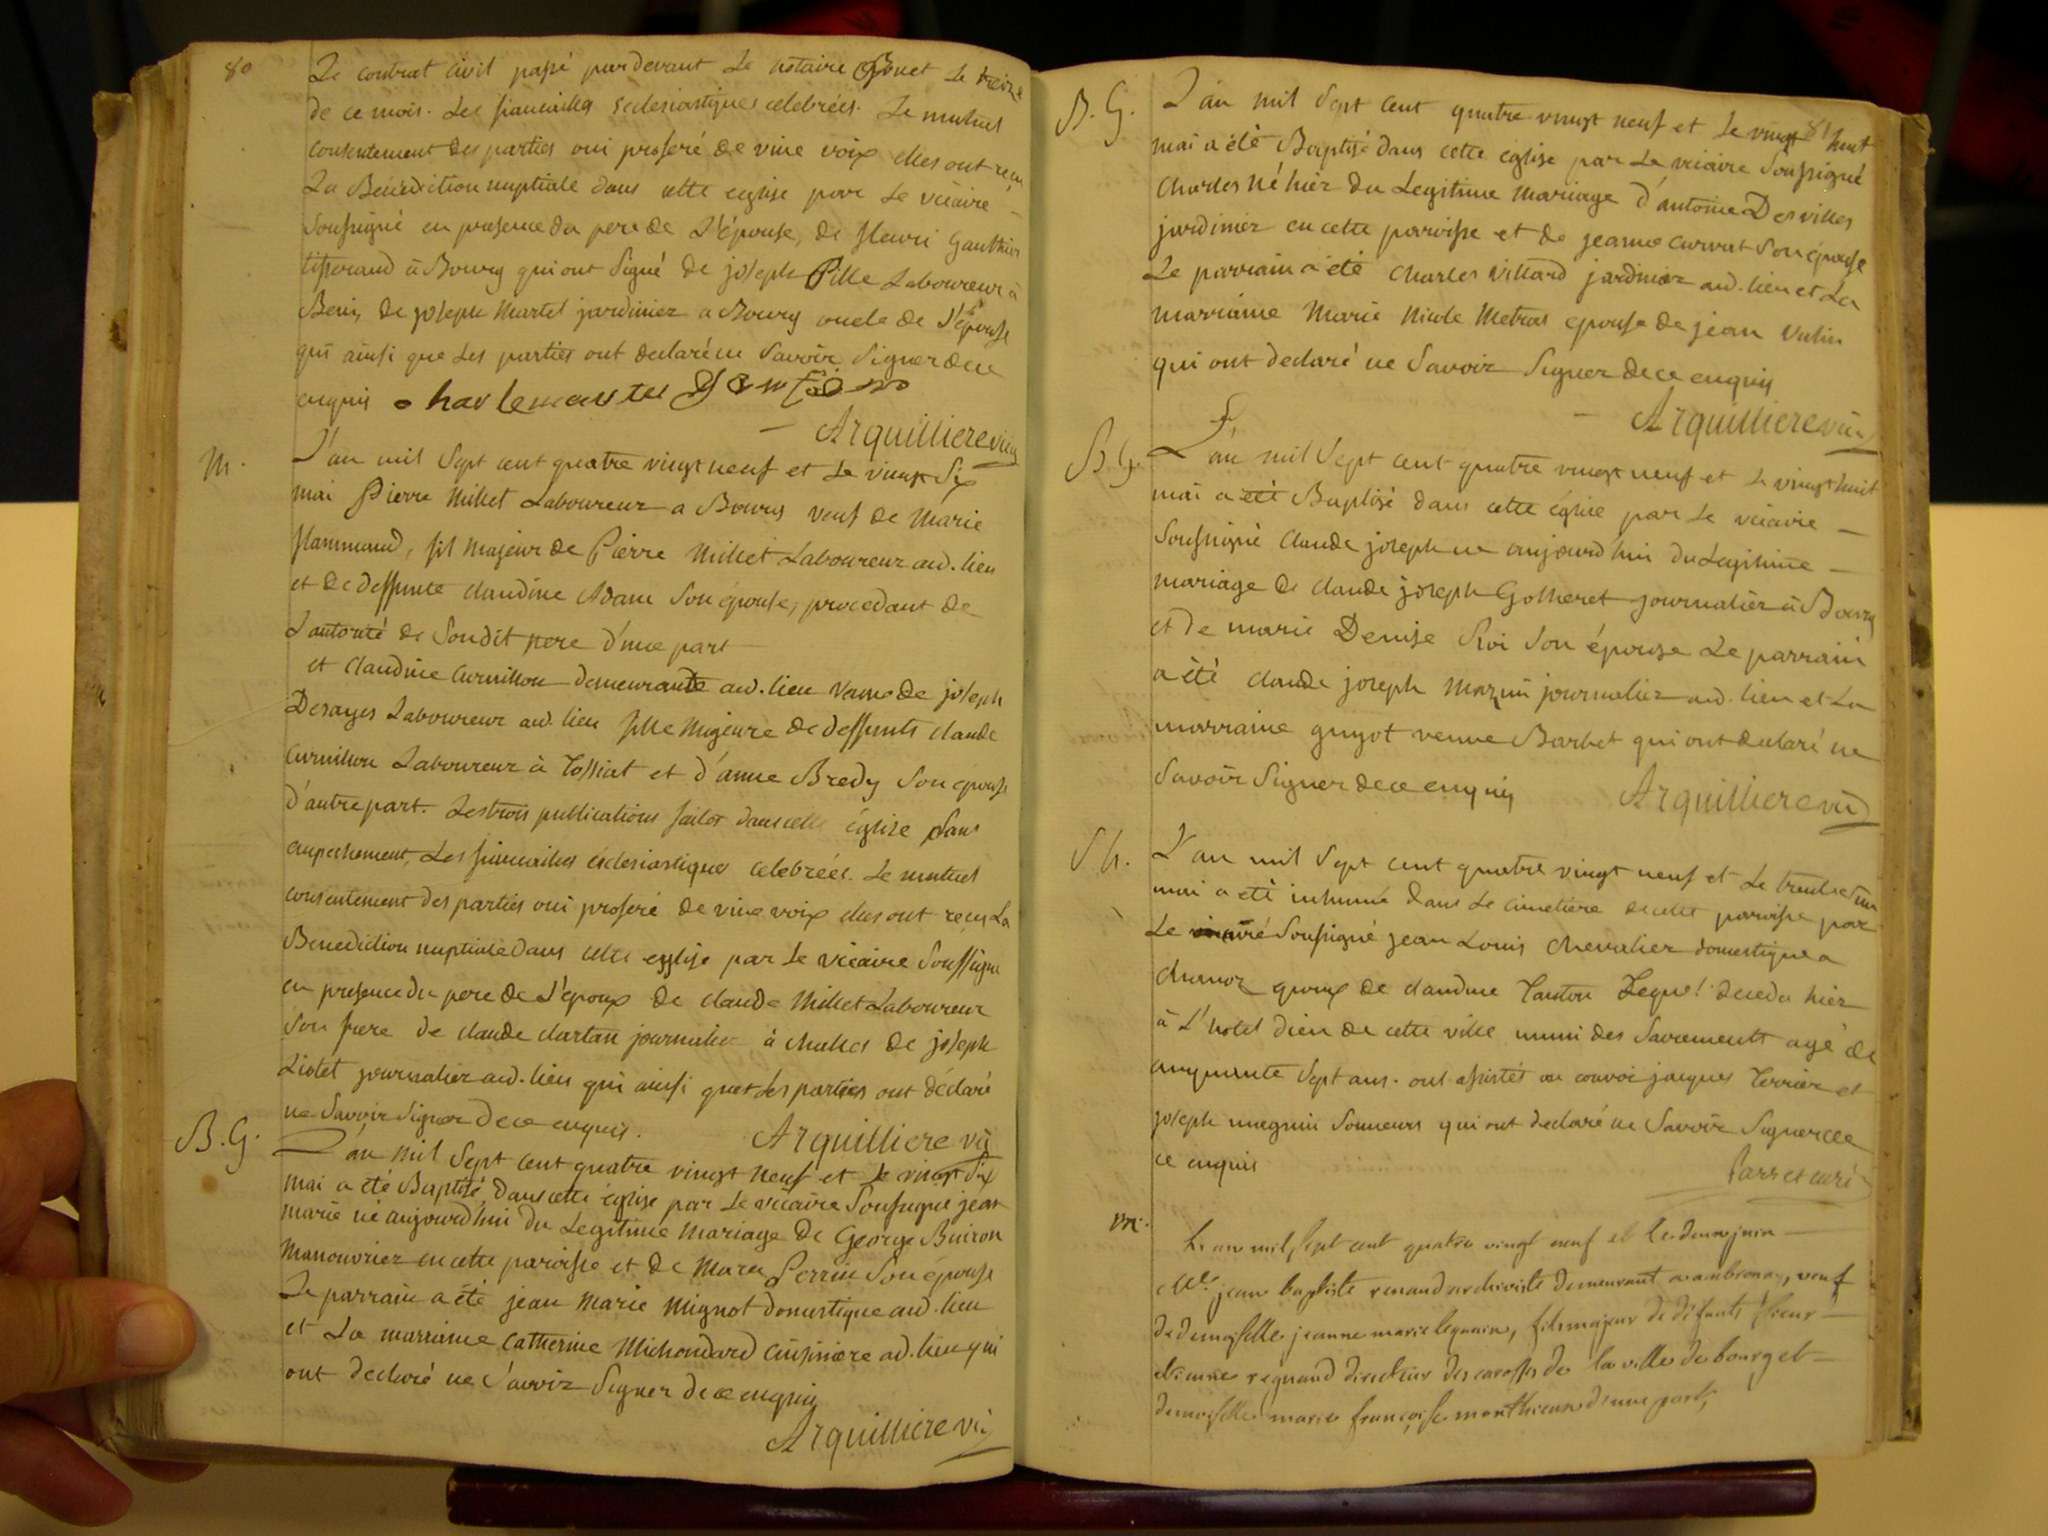 80
Le contrat civil passé pardevant Le notaire Le treize
de ce mois. Les fiancailles eclesiastiques celebrées. Le mutuel
consentement des parties oui proferé de vive voix elles ont reçu
La Bénédiction nuptiale dans cette eglise par Le vicaire
soussigné en presence du pere de L'épouse, de fleuri Gauthier
tisserand à Bourg qui ont signé de joseph Pille Laboureur à
de joseph Martel jardinier a Bourg oncle de L'épouse
qui ainsi que Les parties ont declaré ne Savoir Signer de ce
enquis
Arquilliere vic
M.
L'an mil Sept cent quatre vingt neuf et Le vingt Six
mai Pierre Millet Laboureur a Bourg veuf de Marie
flammand, fil majeur de Pierre Millet Laboureur aud. lieu
et de deffunte claudine Adam Son épouse, procedant de
L'autorité de Soudit pere d'une part
et claudine Curnillon demeurante aud. lieu veuve de joseph
Desayes Laboureur aud. lieu fille majeure de deffunts claude
Curnillon Laboureur à Tossiat et d'anne Bredy Son épouse
d'autre part. Les trois publications faites dans cette église Sans
empechement, Les fiancailles éclesiastiques celebrées. Le mutuel
consentement des parties oui proferé de vive voix elles ont reçu La
Benediction nuptiale dans cette esglise par Le vicaire Soussigné
en presence du pere de L'époux de claude Millet Laboureur
Son frere de claude clartan journalier à challes de joseph
Liotet journalier aud. lieu qui ainsi que Les parties ont déclaré
ne Savoir Signer de ce enquis.
Arquilliere vic
B. G.
L'an mil Sept cent quatre vingt neuf et Le vingt Six
mai a été Baptisé dans cette église par Le vicaire Soussigné jean
marie né aujourd'hui du Legitime mariage de George Buiron
Manouvrier en cette paroisse et de Marie Perrin Son épouse
Le parrain a été jean Marie Mignot domestique aud. lieu
et La marraine Catherine Michoudard cuisiniere ad. lieu qui
ont declaré ne Savoir Signer de ce enquis
Arquilliere vic
81
B. G.
L'an mil Sept cent quatre vingt neuf et Le vingt huit
mai a été Baptisé dans cette église par Le vicaire Soussigné
Charles né hier du Legitime mariage d'antoine Desvilles
jardinier en cette paroisse et de jeanne Curvat Son épouse
Le parrain a été Charles Villard jardinier aud. lieu et La
marraine Marie Nicole Metras epouse de jean
qui ont declaré ne Savoir Signer de ce enquis
Arquilliere vic
B. G.
L'an mil Sept cent quatre vingt neuf et Le vingt huit
mai a été Baptisé dans cette église par Le vicaire
Soussigné claude joseph né aujourd'hui du Legitime
mariage de claude joseph Golheret journalier à Bourg
et de marie Denise Roi Son épouse Le parrain
a été claude joseph journalier aud. lieu et La
marraine guyot veuve Barbet qui ont declaré ne
Savoir Signer de ce enquis
Arquilliere vic
S h.
L'an mil Sept cent quatre vingt neuf et Le trente et un
mai a eté inhumé dans Le cimetière de cette paroisse par
Le curé Soussigné jean Louis Chevalier domestique a
époux de claudine Tardon decedé hier
à L'hotel dieu de cette ville muni des Sacrements agé de
cinquante Sept ans. ont assistés au convoi jacques Terrier et
joseph magnin Sonneurs qui ont declaré ne Savoir Signer de
ce enquis
curé
M.
L'an mil, Sept cent quatre vingt neuf et le deux juin
Mr. jean baptiste renaud archiviste demeurant a ambronay, veuf
de demoiselle jeanne marie lequain, fils majeur de défunts Sieur
etienne regnaud directeur des carosses de la ville de bourg et
demoiselle marie françoise d'une part,